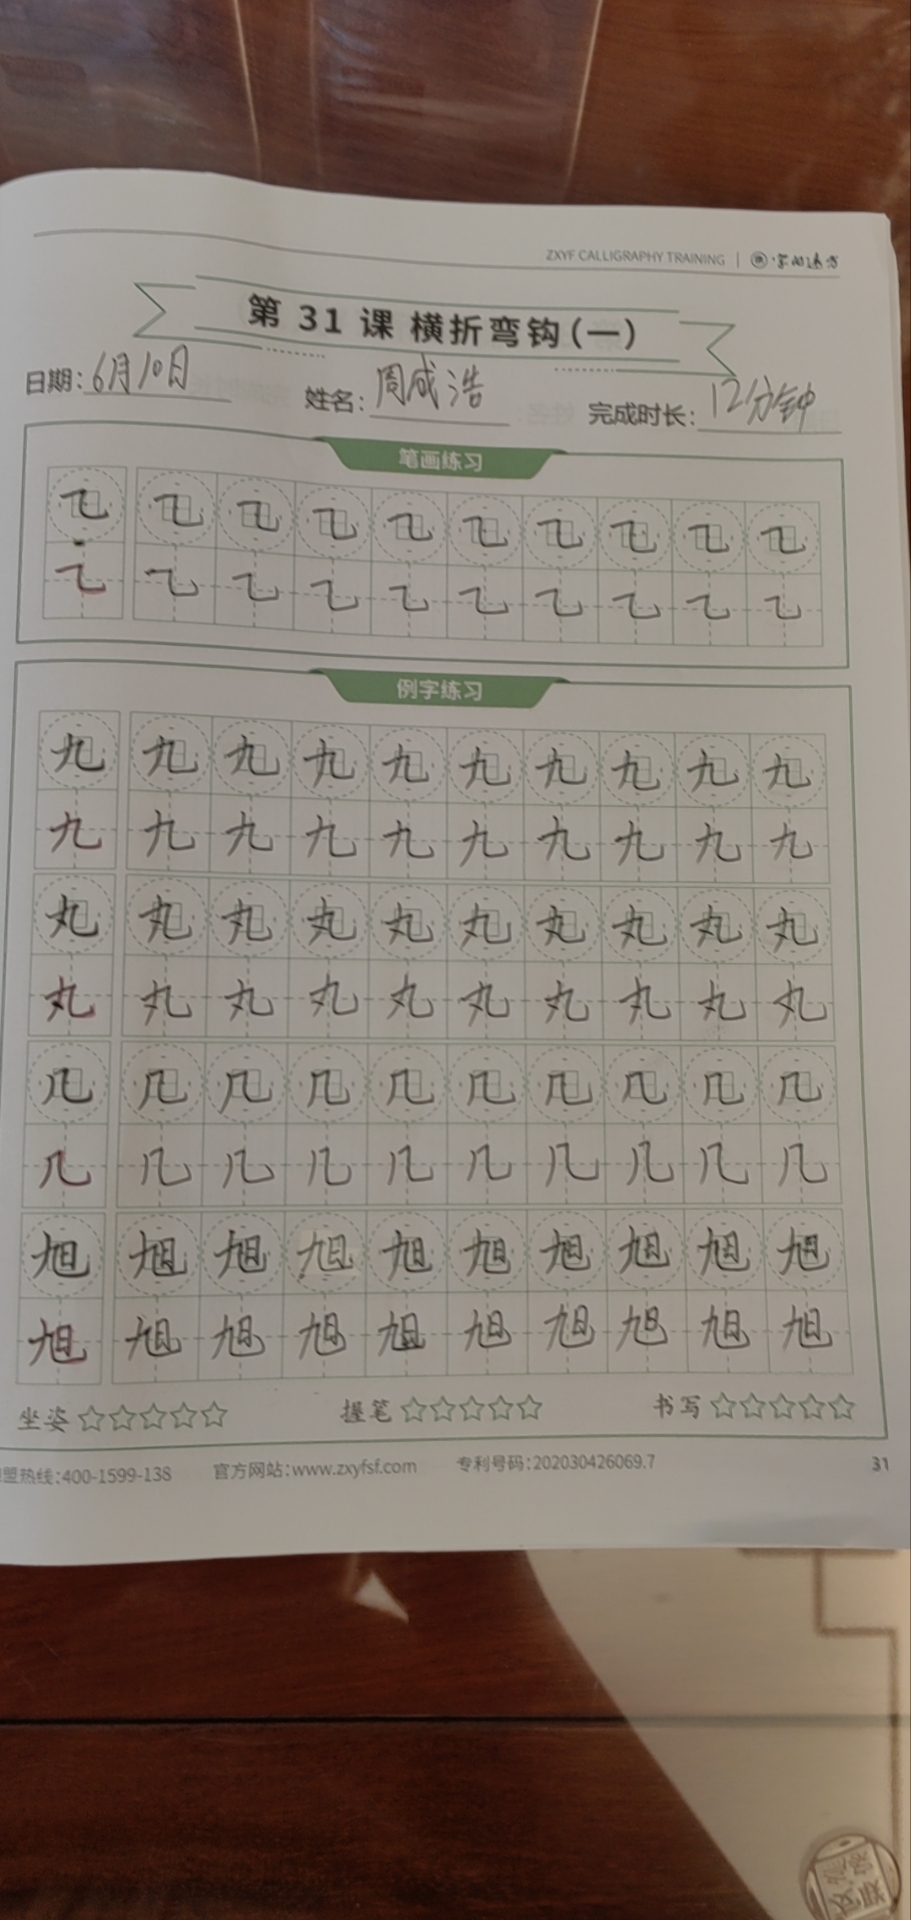 ZXYF CALLIGRAPHY TRAINING | 字的远方
第 31 课 横折弯钩(一)
日期: 6月10日 姓名: 周成浩 完成时长: 12分钟
笔画练习
乙 乙 乙 乙 乙 乙 乙 乙 乙 乙
乙 乙 乙 乙 乙 乙 乙 乙 乙 乙
例字练习
九 九 九 九 九 九 九 九 九 九
九 九 九 九 九 九 九 九 九 九
丸 丸 丸 丸 丸 丸 丸 丸 丸 丸
丸 丸 丸 丸 丸 丸 丸 丸 丸 丸
几 几 几 几 几 几 几 几 几 几
几 几 几 几 几 几 几 几 几 几
旭 旭 旭 旭 旭 旭 旭 旭 旭 旭
旭 旭 旭 旭 旭 旭 旭 旭 旭 旭
坐姿 ☆☆☆☆☆ 握笔 ☆☆☆☆☆ 书写 ☆☆☆☆☆
盟热线:400-1599-138 官方网站:www.zxyfsf.com 专利号码:202030426069.7 31